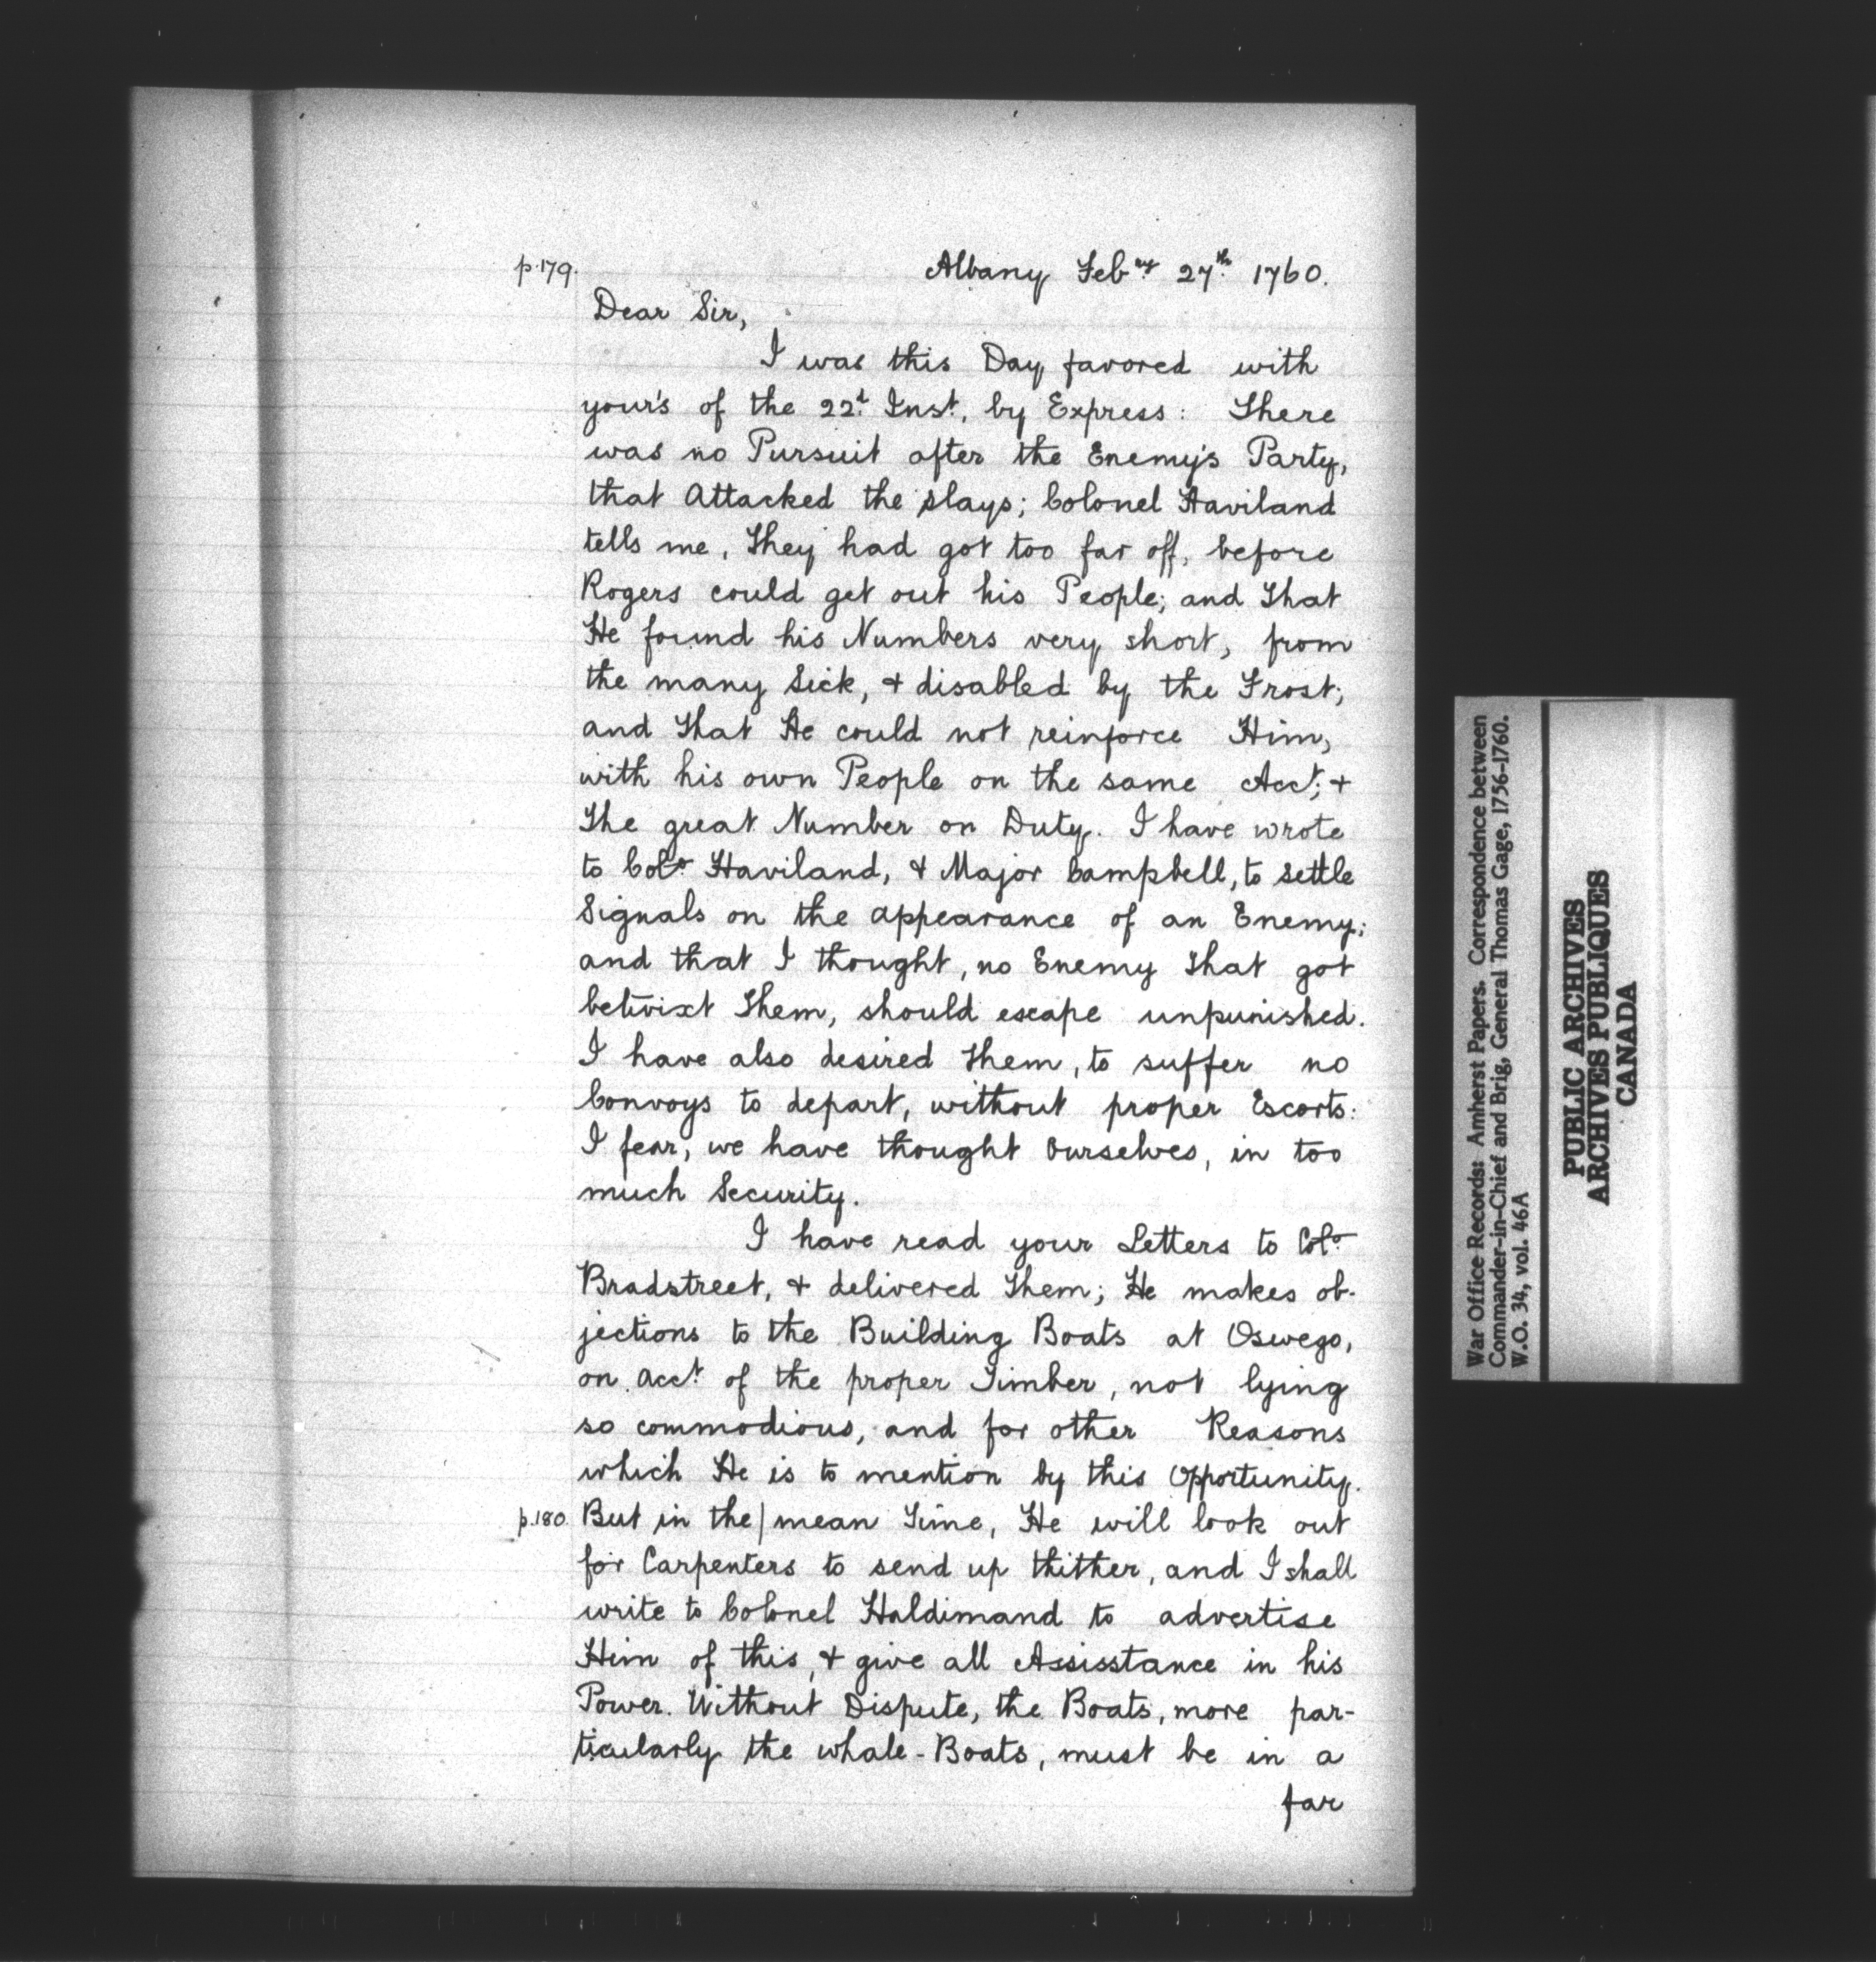 p.179.
Albany Feb.ry 27th 1760.
Dear Sir,
I was this Day favored with
your's of the 22d Inst, by Express: There
was no Pursuit after the Enemy's Party,
that Attacked the slays; Colonel Haviland
tells me, They had got too far off, before
Rogers could get out his People; and That
He found his Numbers very short, from
the many Sick, & disabled by the Frost;
and That He could not reinforce Him,
with his own People on the same Acct; &
The great Number on Duty. I have wrote
to Colo Haviland, & Major Campbell, to settle
Signals on the appearance of an Enemy;
and that I thought, no Enemy That got
betwixt Them, should escape unpunished.
I have also desired Them, to suffer no
Convoys to depart, without proper Escorts:
I fear, we have thought Ourselves, in too
much Security.
I have read your Letters to Colo
Bradstreet, & delivered Them; He makes ob-
jections to the Building Boats at Oswego,
on acct of the proper Timber, not lying
so commodious, and for other Reasons
which He is to mention by this Opportunity.
p.180. But in the/mean Time, He will look out
for Carpenters to send up thither, and I shall
write to Colonel Haldimand to advertise
Him of this, & give all Assisstance in his
Power. Without Dispute, the Boats, more par-
ticularly the whale-Boats, must be in a
far
War Office Records: Amherst Papers. Correspondence between
Commander-in-Chief and Brig, General Thomas Gage, 1756-1760.
W.O. 34, vol. 46A
PUBLIC ARCHIVES
ARCHIVES PUBLIQUES
CANADA